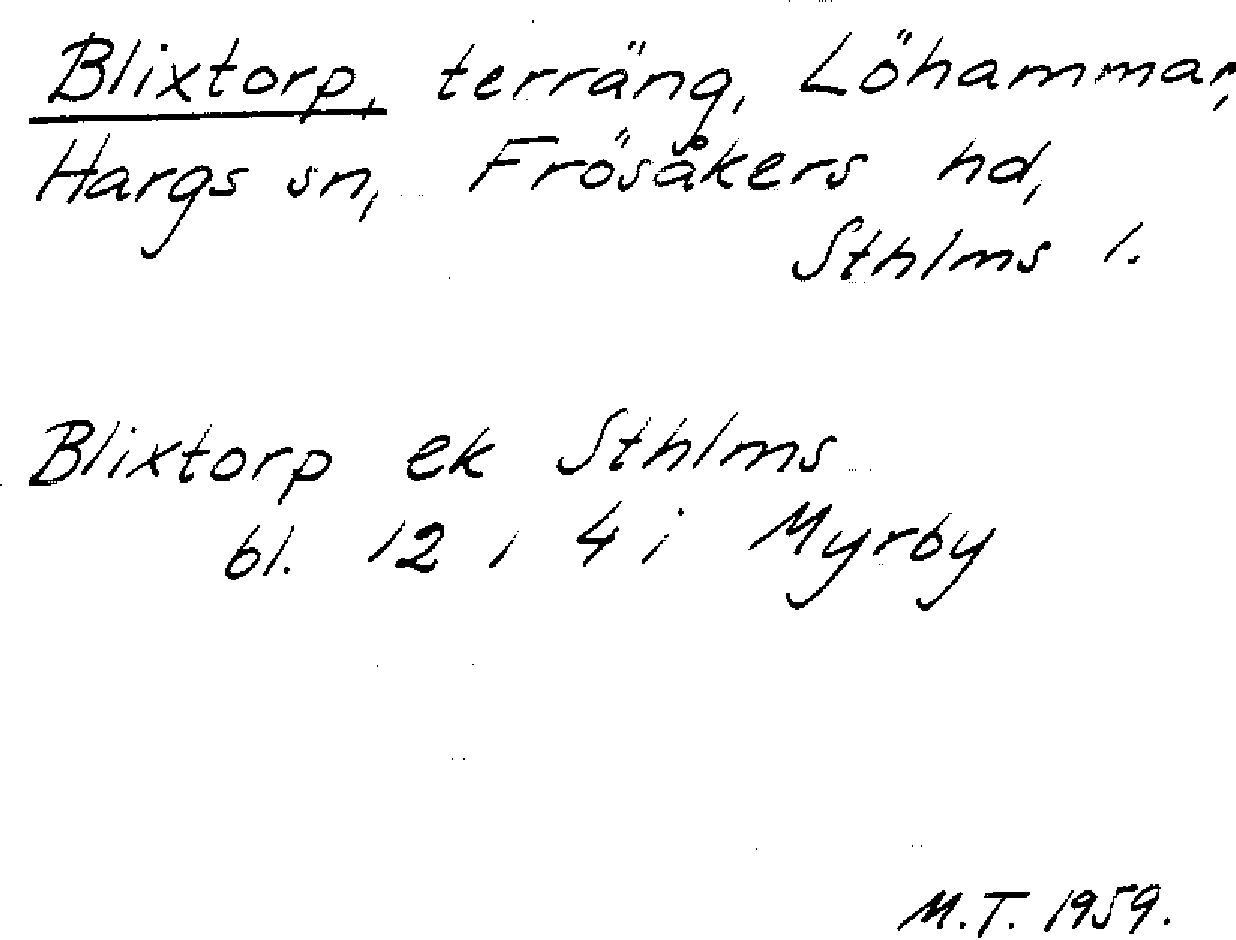 Blixtorp, terräng, Löhammar,
Hargs sn, Frösåkers hd,
Sthlms l.
Blixtorp ek Sthlms
bl. 12, 4 i Myrby
M.T. 1959.